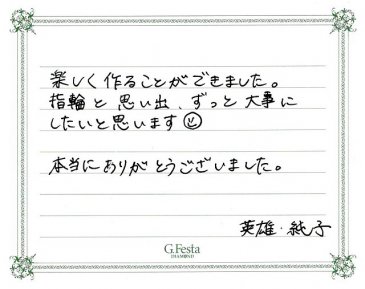 楽しく作ることができました。
指輪と思い出、ずっと大事に
したいと思います☺
本当にありがとうございました。
英雄・純子
G.Festa
DIAMOND